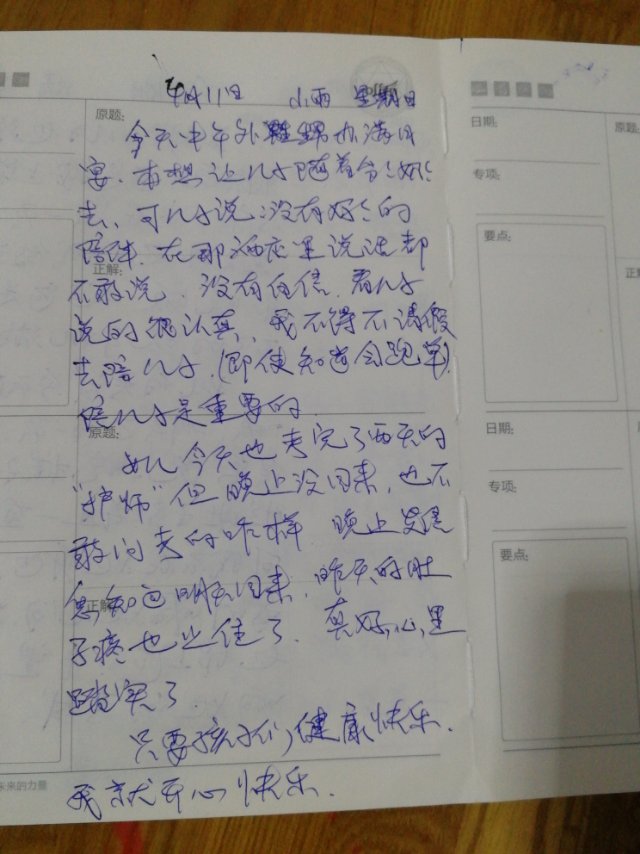 4月11日 小雨 星期日
原题:
今天中午外甥办满月
宴.本想让儿子随着爷爷奶奶
去,可儿子说:没有好好的
陪伴.在那酒店里说话都
正解:
不敢说.没有自信.看儿子
说的很认真,我不得不请假
去陪儿子.(即使知道会跑单)
陪儿子是重要的.
原题:
女儿今天也考完了两天的
"护师"但晚上没回来,也不
敢问考的咋样 晚上发信
正解:
息,知道明天回来,昨天的肚
子疼也止住了.真好,心里
踏实了.
只要孩子们,健康快乐.
未来的力量
我就开心快乐.
日期:
原题:
专项:
要点:
正解
日期:
专项:
要点: